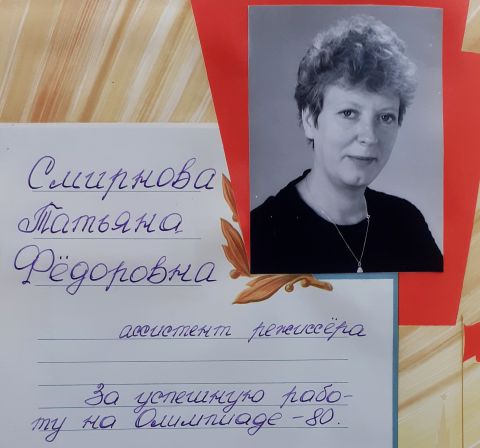 Смирнова
Татьяна
Фёдоровна
ассистент режиссёра
За успешную рабо-
ту на Олимпиаде -80.